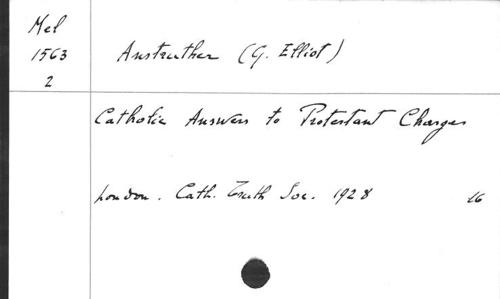 Mel
1563
2
Anstruther (G. Elliot)
Catholic Answers to Protestant Charges
London. Cath. Truth Soc. 1928 16